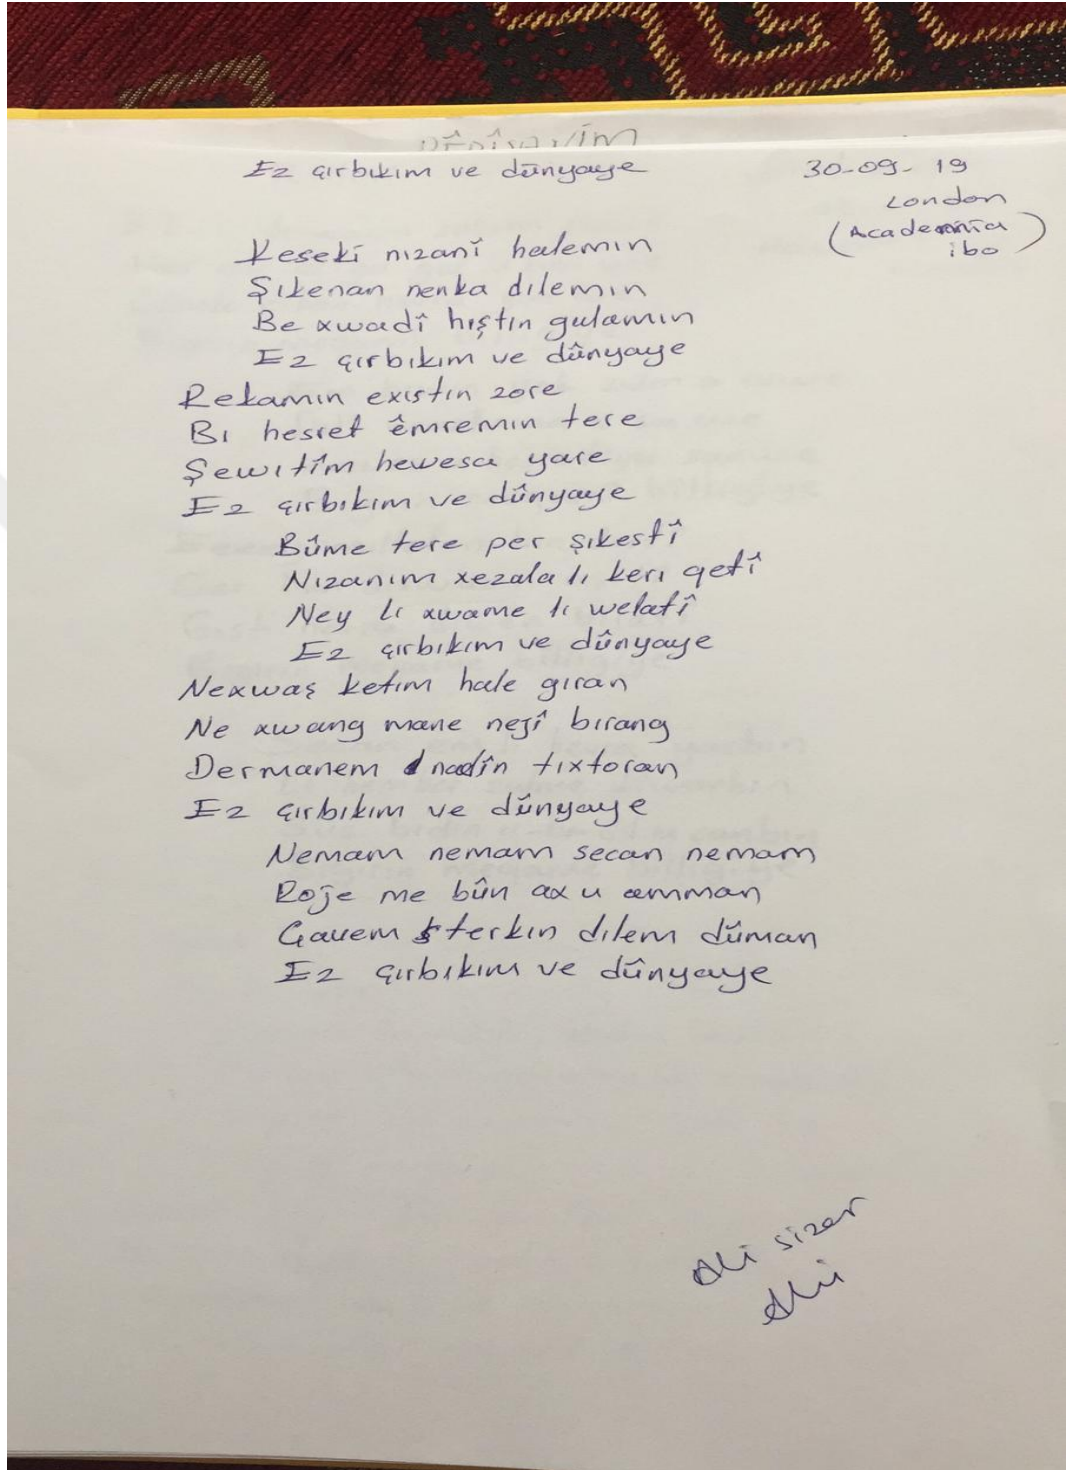 Ez çırbıkım ve dünyaye
30-09-19
London
(Academia
ibo)
Keseki nızanî halemın
Şıkenan nenka dılemın
Be xwadî hıştın gulamın
Ez çırbıkım ve dûnyaye
Rekamın exıstın zore
Bı hesret êmremın tere
Şewıtîm hewesa yare
Ez çırbıkım ve dûnyaye
Bûme tere per şıkestî
Nızanım xezala lı kerı qetî
Ney lı xwame lı welatî
Ez çırbıkım ve dûnyaye
Nexwaş ketım hale gıran
Ne xwang mane nejî bırang
Dermanem nadîn tıxtoran
Ez çırbıkım ve dûnyaye
Nemam nemam secan nemam
Roje me bûn ax u amman
Gavem sterkın dılem dûman
Ez çırbıkım ve dûnyaye
Ali sizer
Ali